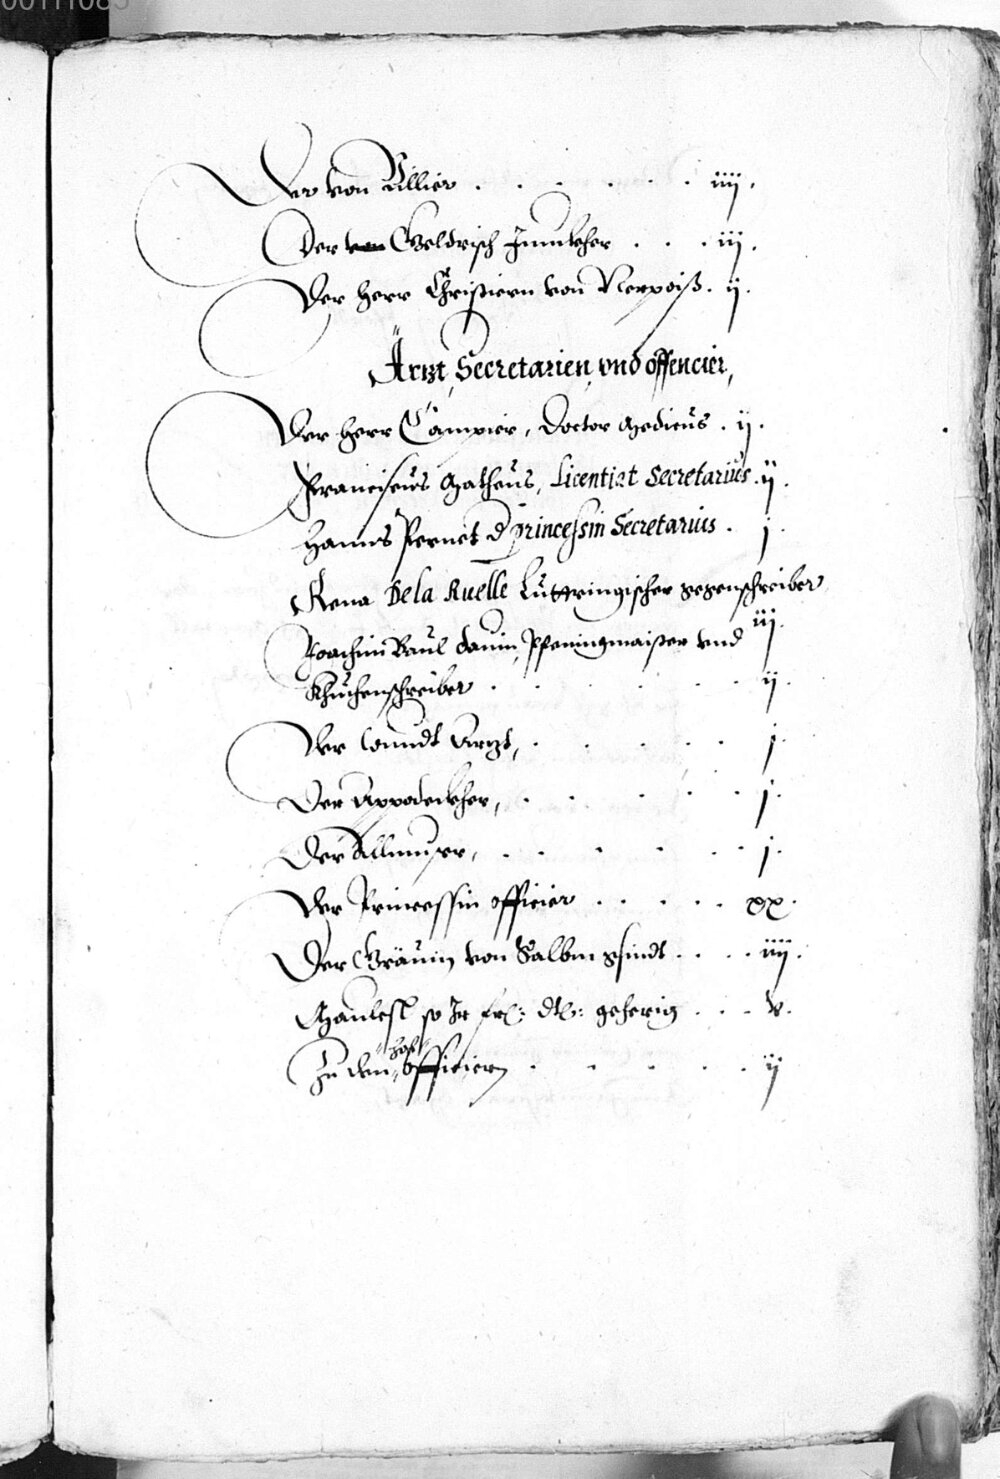 00111083
Der von Villier . . . . . . iiij.
Der von Geldrisch Junckher . . . iij.
Der Herr Christiern von Nerpoiß. ij.
Ärtzt, Secretarien, vnd offencier,
Der Herr Campier, Doctor Medicus . ij.
Franciscus Matheus, Licentiat Secretarius . ij.
Hanns Pernet d princessin Secretarius . j.
Rena De la Ruelle Luttringischer gegenschreiber
iij.
Joachim Baul dauin, Pfeningmaister vnd
Khuchenschreiber . . . . . . ij.
Der Wundt Artzt, . . . . . j.
Der Appodeckher, . . . . . j.
Der Allmuser, . . . . . . j.
Der Princessin officier . . . . . xx.
Der Gräuin von Salbm gsindt . . . . iiij.
Maulesl so Ir frl: dt: geherig . . . v.
Zu den hof officiern . . . . . ij